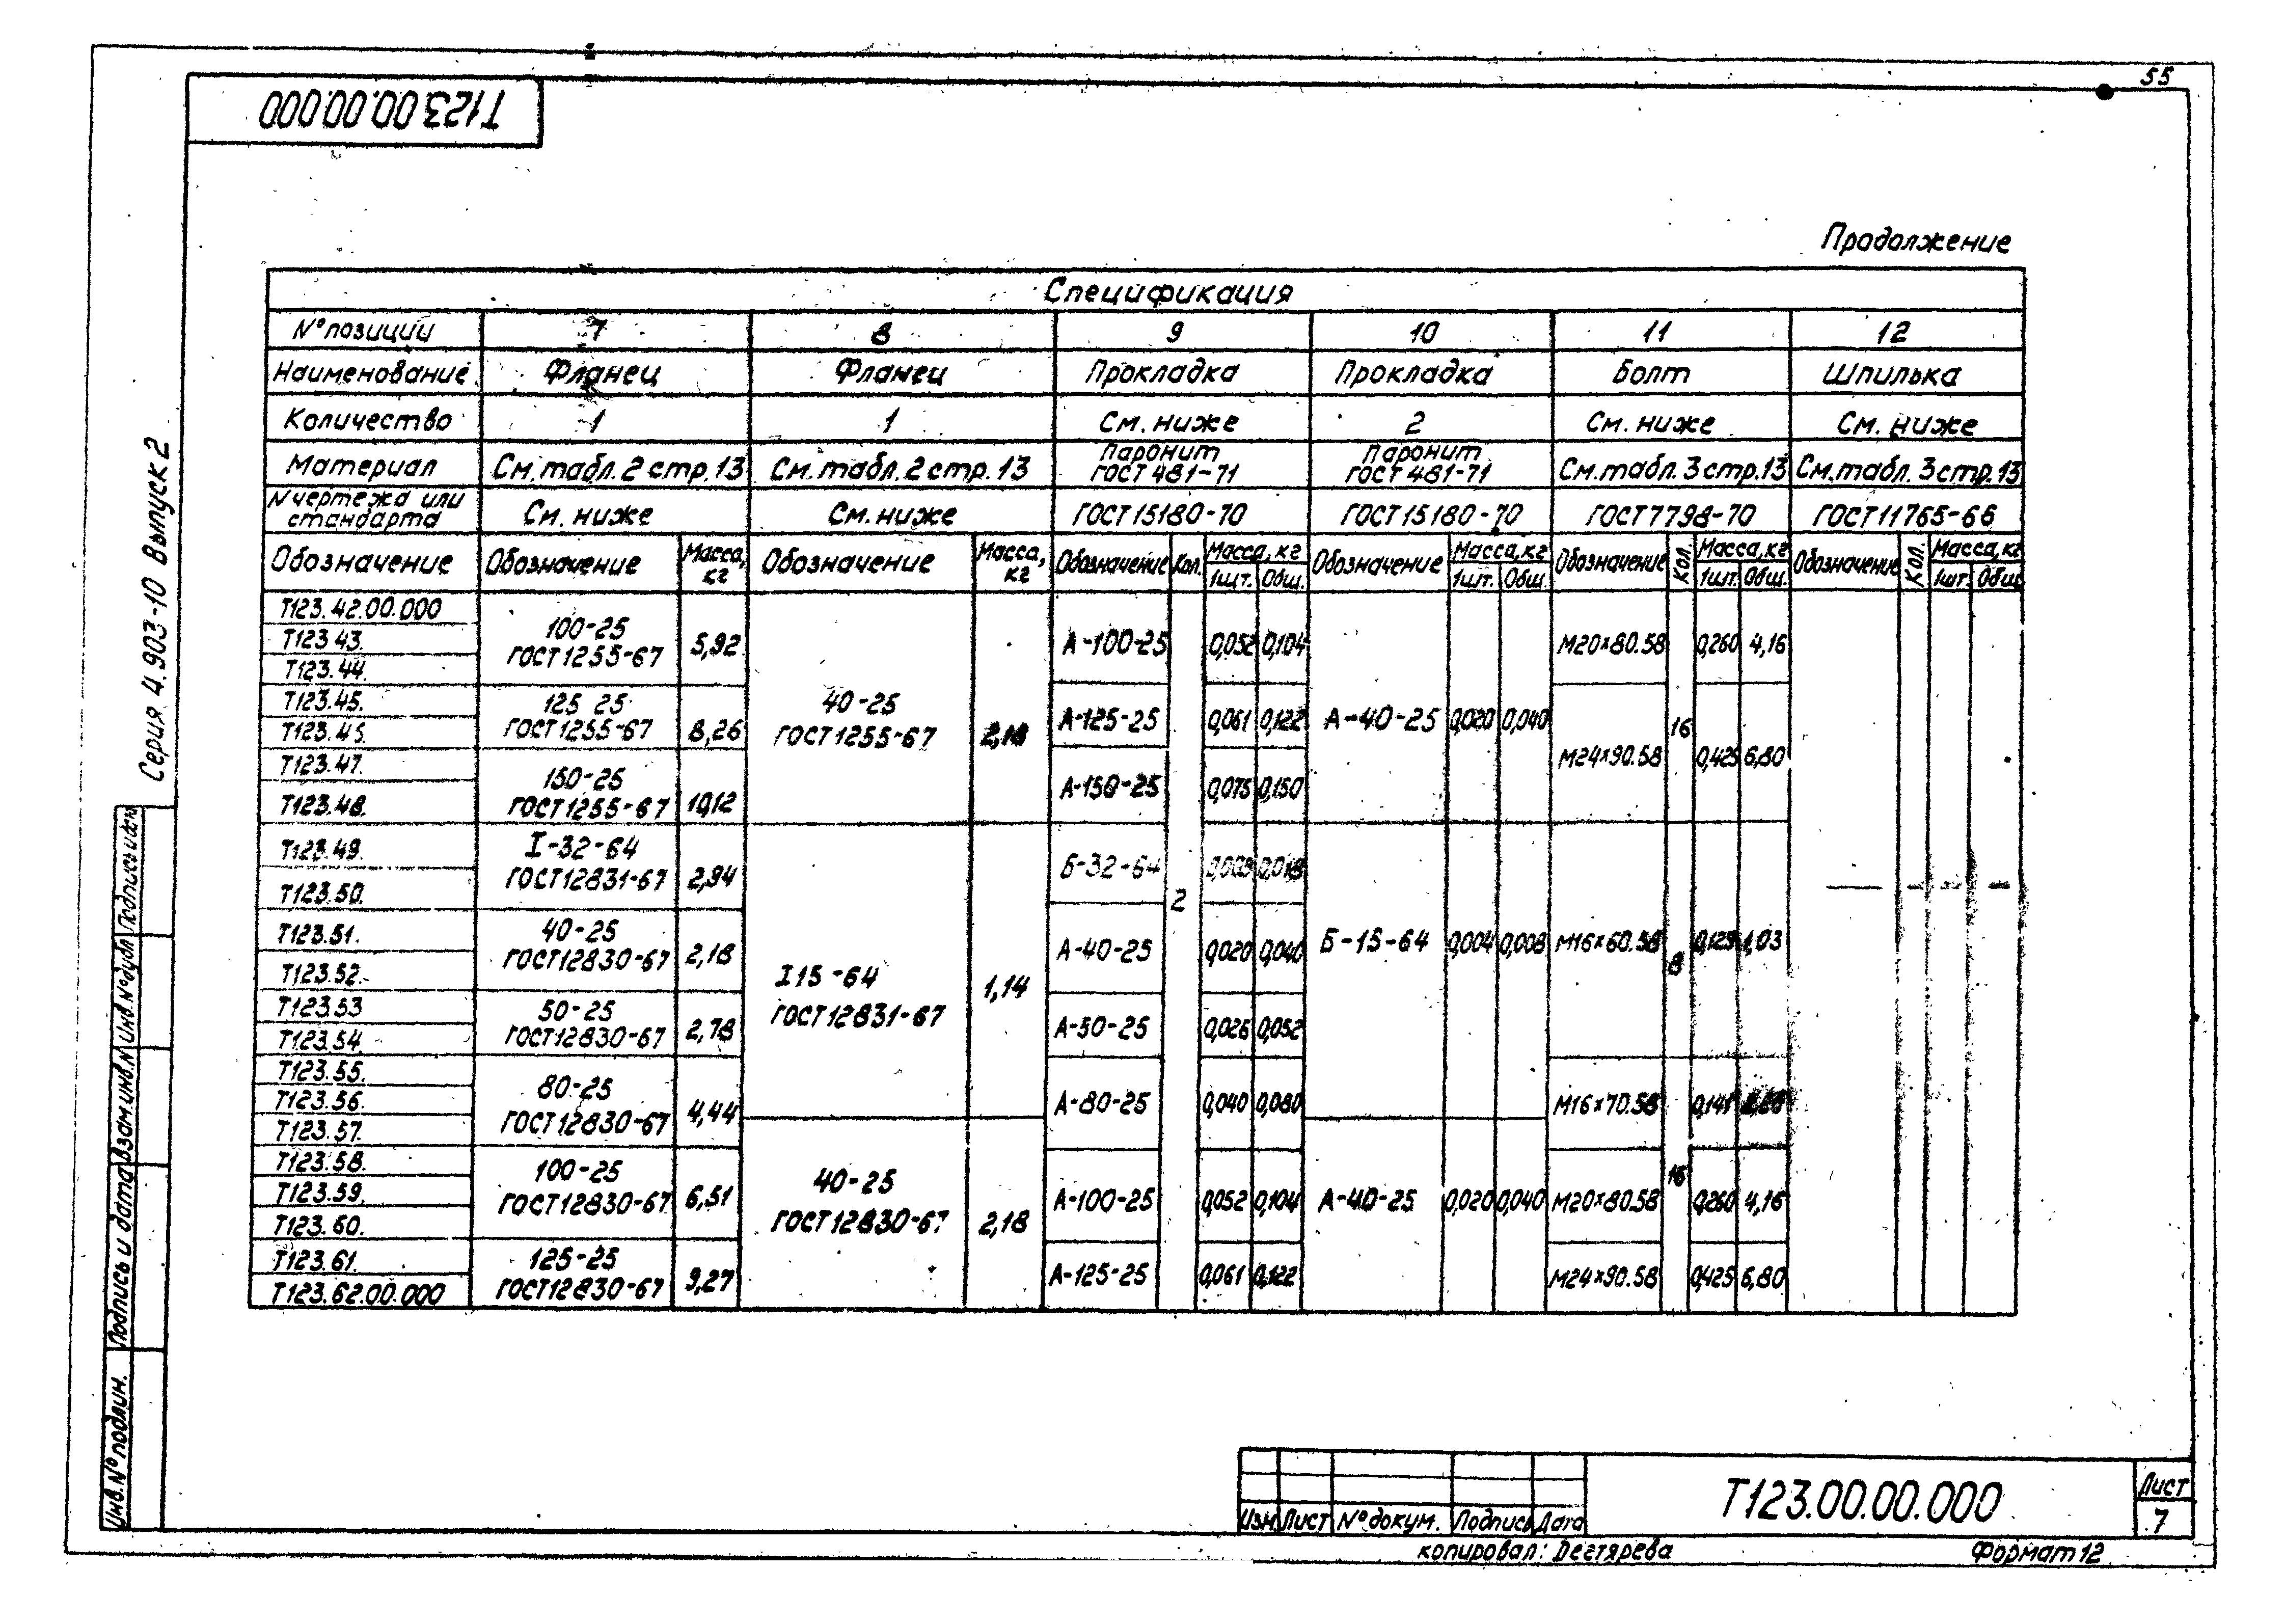 55
Т123.00.00.000
Продолжение
Спецификация
№ позиции 7 8 9 10 11 12
Наименование Фланец Фланец Прокладка Прокладка Болт Шпилька
Количество 1 1 См. ниже 2 См. ниже См. ниже
Материал См. табл. 2 стр. 13 См. табл. 2 стр. 13 Паронит ГОСТ 481-71 Паронит ГОСТ 481-71 См. табл. 3 стр. 13 См. табл. 3 стр. 13
N чертежа или стандарта См. ниже См. ниже ГОСТ 15180-70 ГОСТ 15180-70 ГОСТ 7798-70 ГОСТ 11765-66
Обозначение Обозначение Масса, кг Обозначение Масса, кг Обозначение Кол. Масса, кг Обозначение Масса, кг Обозначение Кол. Масса, кг Обозначение Кол. Масса, кг
1шт. Общ. 1шт. Общ. 1шт. Общ. 1шт. Общ.
Т123.42.00.000
Т123.43.
Т123.44.
100-25
ГОСТ 1255-67 5,92
А-100-25 0,052 0,104
М20×80.58 0,260 4,16
Т123.45.
Т123.45.
125 25
ГОСТ 1255-67 8,26
40-25
ГОСТ 1255-67 2,18
А-125-25 0,061 0,122
А-40-25 0,020 0,040
16
М24×90.58 0,425 6,80
Т123.47.
Т123.48.
150-25
ГОСТ 1255-67 10,12
А-150-25 0,075 0,150
Т123.49.
Т123.50.
I-32-64
ГОСТ 12831-67 2,94
Б-32-64
2
Т123.51.
Т123.52.
40-25
ГОСТ 12830-67 2,18
I15-64
ГОСТ 12831-67 1,14
А-40-25 0,020 0,040
Б-15-64 0,004 0,008
М16×60.58 8 1,03
Т123.53
Т123.54.
50-25
ГОСТ 12830-67 2,78
А-50-25 0,026 0,052
Т123.55.
Т123.56.
Т123.57.
80-25
ГОСТ 12830-67 4,44
А-80-25 0,040 0,080
М16×70.58 0,141
Т123.58.
Т123.59.
Т123.60.
100-25
ГОСТ 12830-67 6,51
40-25
ГОСТ 12830-67 2,18
А-100-25 0,052 0,104
А-40-25 0,020 0,040
М20×80.58 16 0,260 4,16
Т123.61.
Т123.62.00.000
125-25
ГОСТ 12830-67 9,27
А-125-25 0,061 0,122
М24×90.58 0,425 6,80
Серия 4.903-10 Выпуск 2
Инв. № подлин.
Подпись и дата
Взам инв. №
Инв. № дубл
Подпись и дата
Изм Лист № докум. Подпись Дата
Т123.00.00.000
Лист
7
копировал: Дегтярева
Формат 12